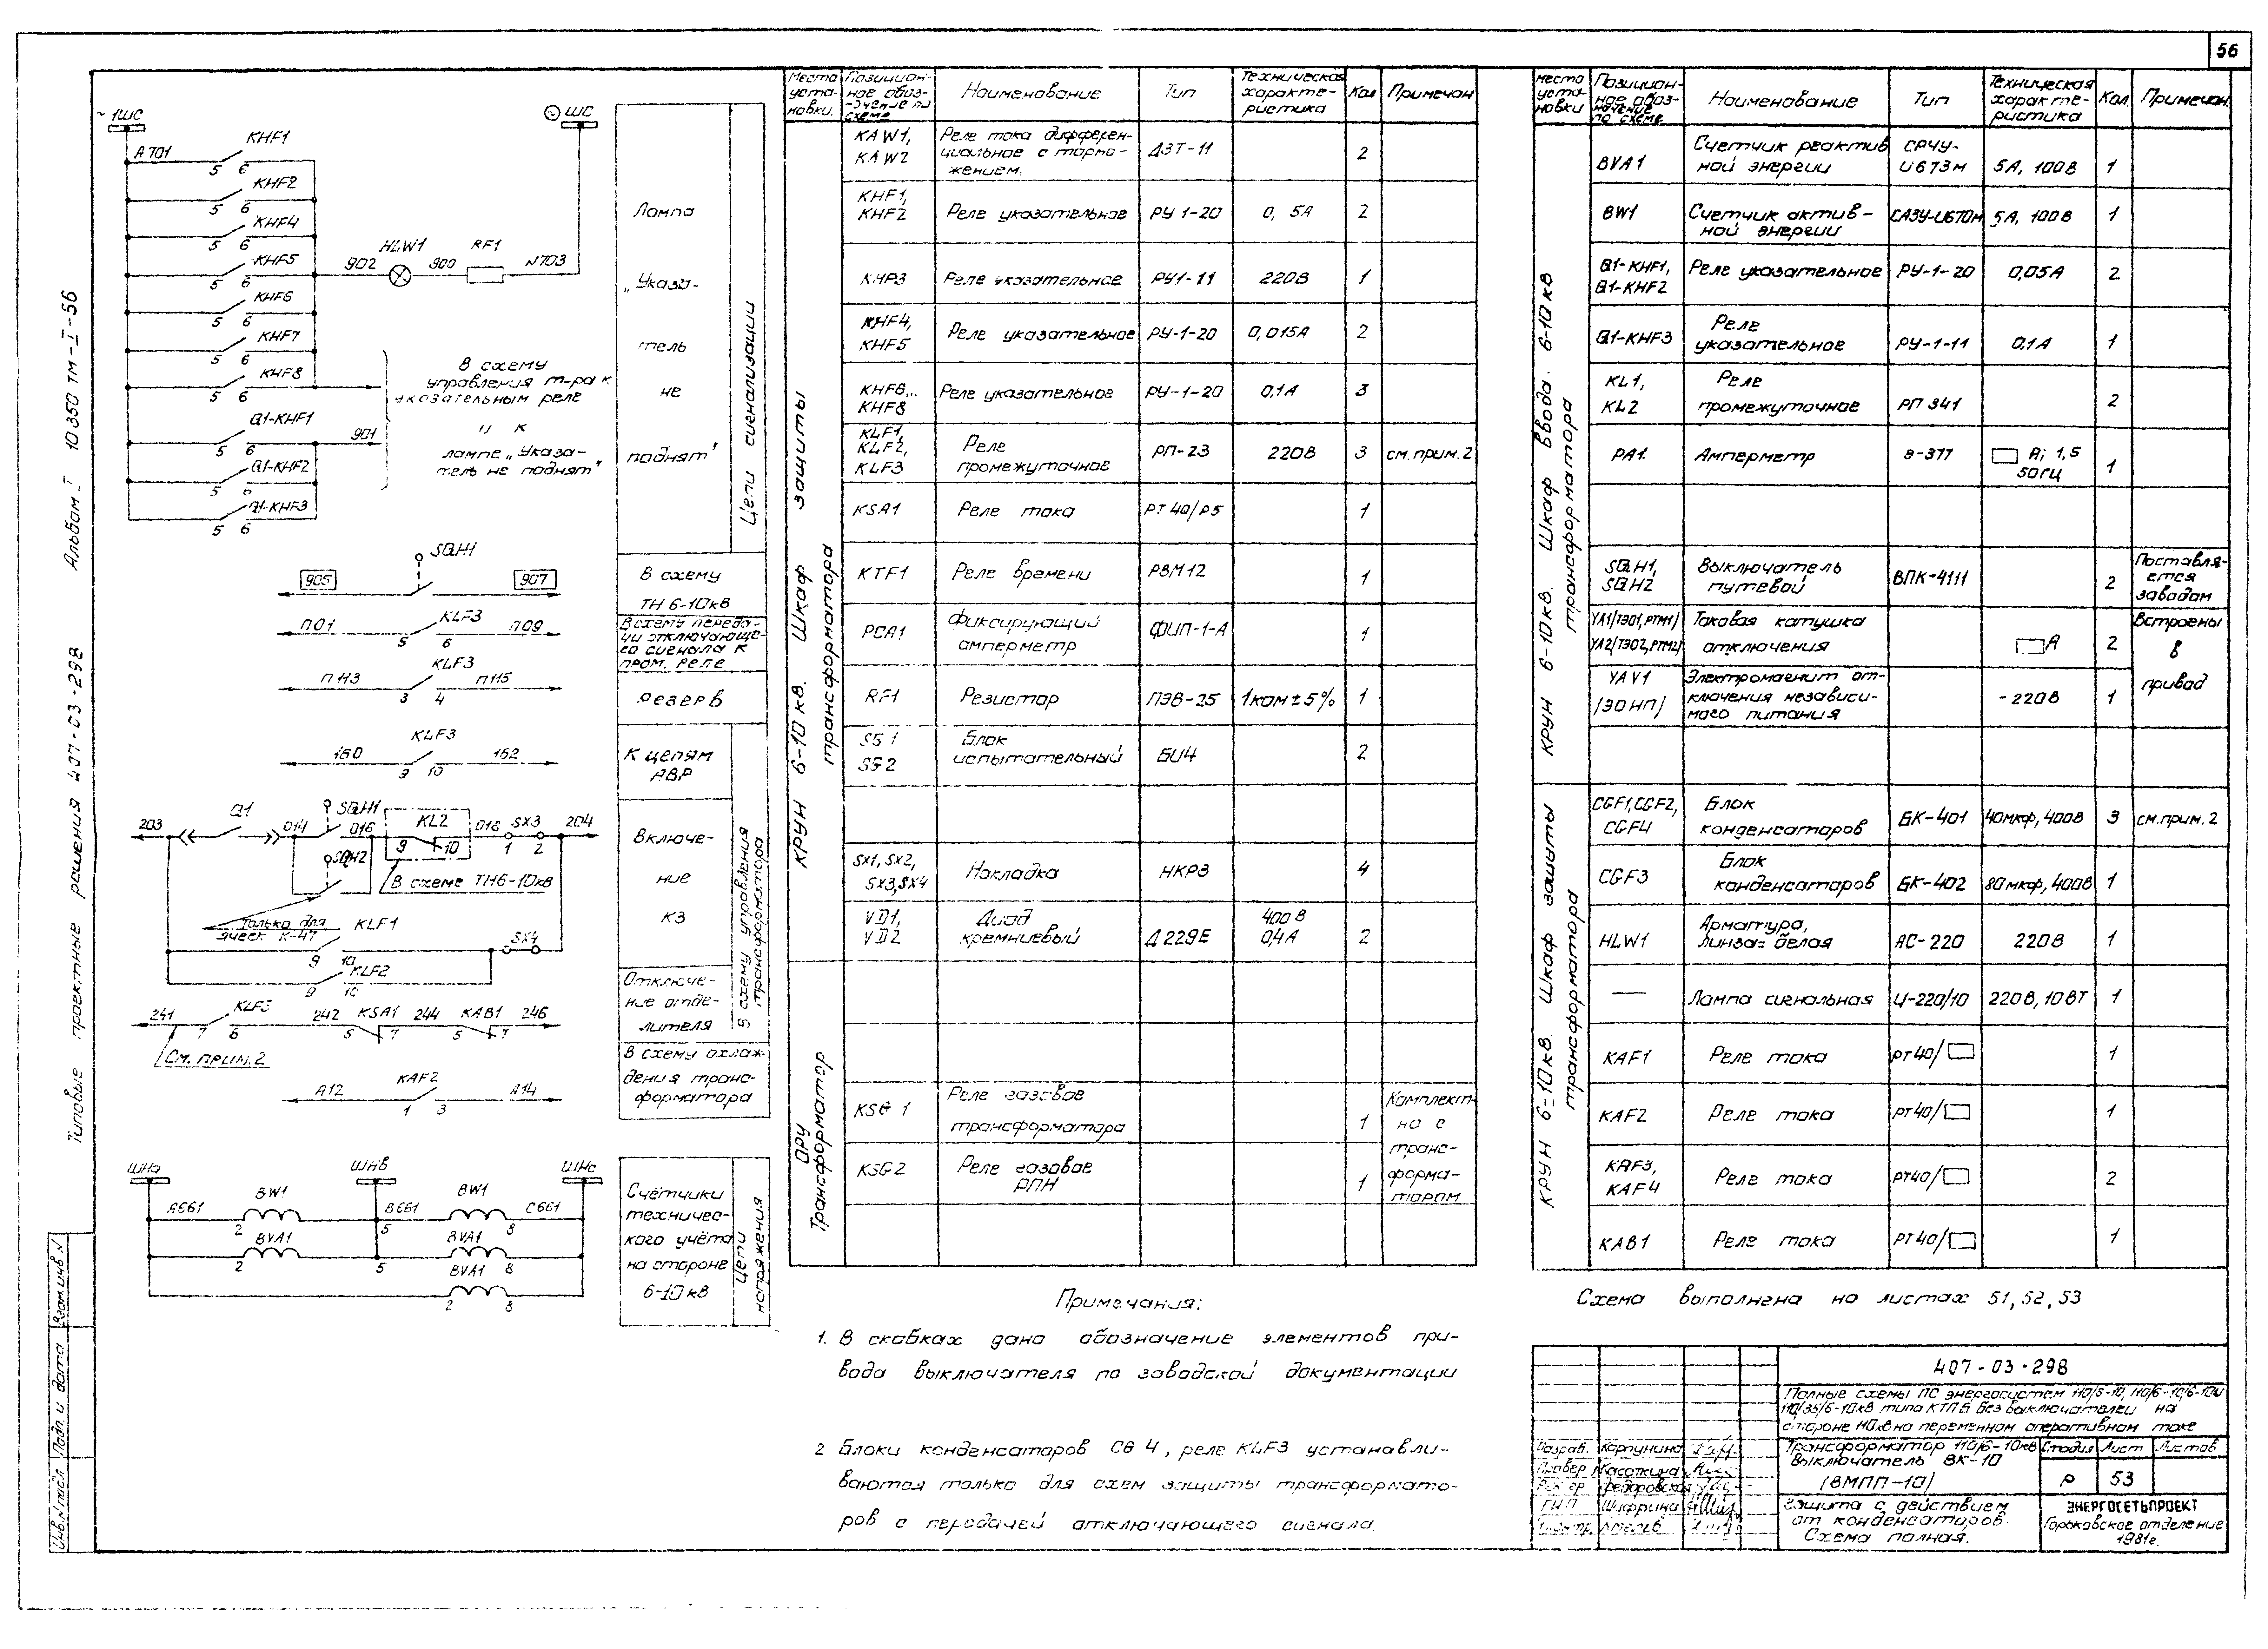 56
Типовые проектные решения 407-03-298 Альбом I 10350 тм-I-56
Взам.инв.N
Подп. и дата
Инв.N подл
~1ШС
ШС
А701
KHF1
5 6
KHF2
5 6
KHF4
5 6
KHF5
5 6
902 HLW1 900 RF1 N703
KHF6
5 6
KHF7
5 6
KHF8
5 6
В схему
управления т-ра к
указательным реле
и к
лампе „Указа-
тель не поднят"
Q1-KHF1
901
5 6
Q1-KHF2
5 6
Q1-KHF3
5 6
Лампа
„Указа-
тель
не
поднят"
Цепи сигнализации
SQH1
905 907
В схему
ТН 6-10кв
KLF3
П01 П09
5 6
В схему переда-
чи отключающе-
го сигнала к
пром. реле
KLF3
П113 П115
3 4
Резерв
KLF3
150 152
9 10
К цепям
АВР
203 Q1 014 SQH1 016 KL2 018 SX3 204
9 10 1 2
SQH2
В схеме ТН6-10кв
Только для
ячеек К-47
KLF1
9 10
SX4
KLF2
9 10
Включе-
ние
КЗ
В схему управления
трансформатора
241 KLF3 242 KSA1 244 KAB1 246
7 8 5 7 5 7
См. прим.2
Отключе-
ние отде-
лителя
KAF2
А12 А14
1 3
В схему охлаж-
дения транс-
форматора
ШНа ШНв ШНс
А661 BW1 В661 BW1 С661
2 5 8
BVA1 BVA1
2 5 8
BVA1
2 8
Счётчики
техничес-
кого учёта
на стороне
6-10кв
Цепи
напряжения
Места
уста-
новки.
Позицион-
ное обоз-
начение по
схеме
Наименование
Тип
Техническая
характе-
ристика
Кол
Примечан
КРУН 6-10кв. Шкаф защиты
трансформатора
KAW1,
KAW2
Реле тока дифферен-
циальное с тормо-
жением.
ДЗТ-11 2
KHF1,
KHF2
Реле указательное РУ 1-20 0, 5А 2
KHP3 Реле указательное РУ1-11 220В 1
KHF4,
KHF5
Реле указательное РУ-1-20 0,015А 2
KHF6,..
KHF8
Реле указательное РУ-1-20 0,1А 3
KLF1,
KLF2,
KLF3
Реле
промежуточное
РП-23 220В 3 см.прим.2
KSA1 Реле тока РТ40/Р5 1
KTF1 Реле времени РВМ12 1
PCA1 Фиксирующий
амперметр
ФИП-1-А 1
RF1 Резистор ПЭВ-25 1ком±5% 1
SG1
SG2
Блок
испытательный
БИ4 2
SX1, SX2,
SX3,SX4
Накладка НКР3 4
VD1,
VD2
Диод
кремниевый
Д229Е 400В
0,4А
2
ОРУ
Трансформатор
KSG 1 Реле газовое
трансформатора
1
KSG2 Реле газовое
РПН
1
Комплект-
но с
транс-
форма-
тором
Примечания:
1. В скобках дано обозначение элементов при-
вода выключателя по заводской документации
2 Блоки конденсаторов CG 4, реле KLF3 устанавли-
ваются только для схем защиты трансформато-
ров с передачей отключающего сигнала.
места
уста-
новки
Позицион-
ное обоз-
начение
по схеме
Наименование
Тип
Техническая
характе-
ристика
Кол.
Примечан.
КРУН 6-10кв. Шкаф ввода. 6-10кв
трансформатора
BVA1 Счетчик реактив
ной энергии
СРЧУ-
И673м
5А, 100В 1
BW1 Счетчик актив-
ной энергии
САЗУ-И670м 5А, 100в 1
Q1-KHF1,
Q1-KHF2
Реле указательное РУ-1-20 0,05А 2
Q1-KHF3 Реле
указательное
РУ-1-11 0,1А 1
KL1,
KL2
Реле
промежуточное
РП 341 2
PA1. Амперметр Э-377 А; 1,5
50гц
1
SQH1,
SQH2
Выключатель
путевой
ВПК-4111 2
Поставля-
ется
заводом
YA1/ТЭО1,РТМ1/
YA2/ТЭО2,РТМ2/
Токовая катушка
отключения
А 2
Встроены
в
привод
YAV1
/ЭОНП/
Электромагнит от-
ключения независи-
мого питания
-220В 1
КРУН 6-10кв. Шкаф защиты
трансформатора
CGF1,CGF2,
CGF4
Блок
конденсаторов
БК-401 40мкф,400В 3 см.прим.2
CGF3 Блок
конденсаторов
БК-402 80мкф,400В 1
HLW1 Арматура,
линза=белая
АС-220 220В 1
— Лампа сигнальная Ц-220/10 220В,10ВТ 1
KAF1 Реле тока РТ40/ 1
KAF2 Реле тока РТ40/ 1
KAF3,
KAF4
Реле тока РТ40/ 2
KAB1 Реле тока РТ40/ 1
Схема выполнена на листах 51,52,53
407-03-298
Полные схемы ПС энергосистем 110/6-10, 110/6-10/6-10и
110/35/6-10кв типа КТПБ без выключателей на
стороне 110кв на переменном оперативном токе
Разраб. Карпунина
Провер Касаткина
Федоровская
ГИП Шифрина
Трансформатор 110/6-10кв
Выключатель ВК-10
(ВМПП-10)
Стадия Лист Листов
Р 53
Защита с действием
от конденсаторов.
Схема полная.
ЭНЕРГОСЕТЬПРОЕКТ
Горьковское отделение
1981г.